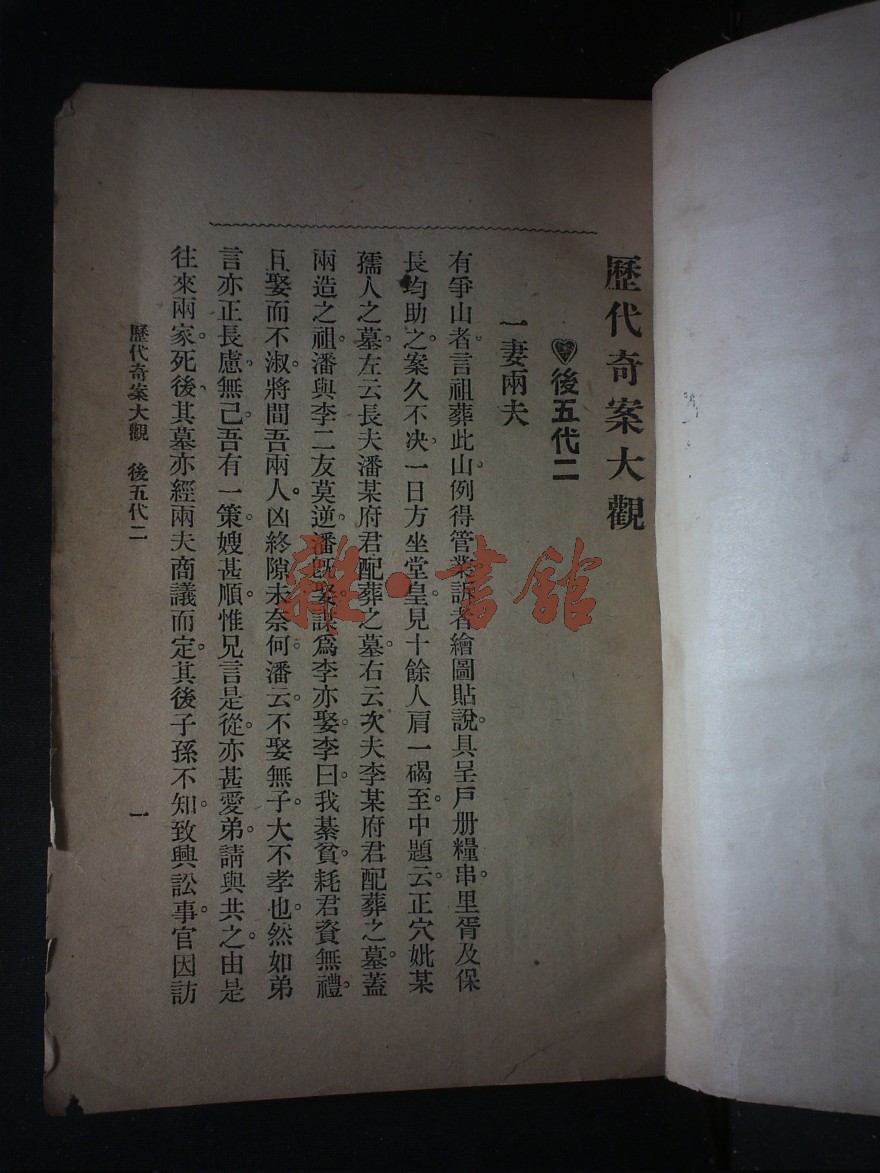 歷代奇案大觀
後五代二
一妻兩夫
有爭山者言祖葬此山。例得管業訴者繪圖貼說。具呈戶册糧串。里胥及保
長均助之案久不决。一日方坐堂皇。見十餘人肩一碣。至中題云。正穴妣某
孺人之墓。左云長夫潘某府君配葬之墓。右云次夫李某府君配葬之墓。蓋
兩造之祖。潘與李二友莫逆。潘旣娶。謀爲李亦娶。李曰。我綦貧。耗君資無禮。
且娶而不淑。將間吾兩人。凶終隙末奈何。潘云。不娶無子。大不孝也。然如弟
言亦正長慮。無已。吾有一策。嫂甚順。惟兄言是從。亦甚愛弟。請與共之。由是
往來兩家。死後。其墓亦經兩夫商議而定。其後子孫不知。致興訟事。官因訪
歷代奇案大觀 後五代二
一
雜·書館